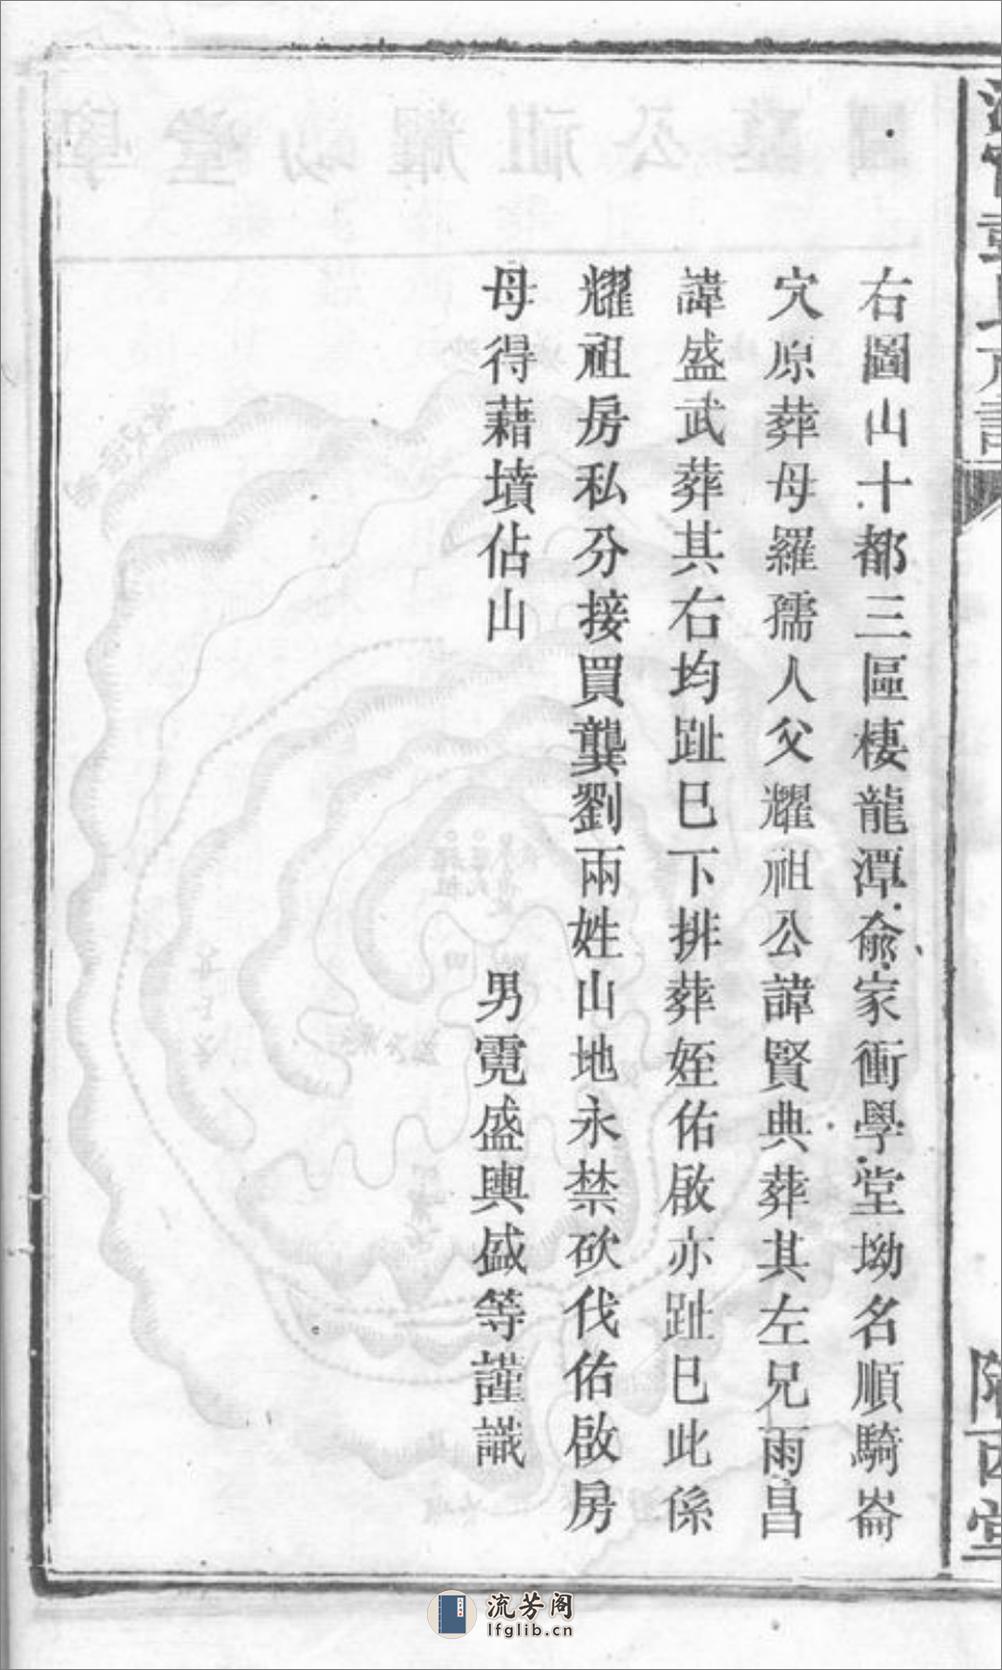 右圖山十都三區棲龍潭俞家衝學堂坳名順騎崙
穴原葬母羅孺人父耀祖公諱賢典葬其左兄雨昌
諱盛武葬其右均趾巳下排葬姪佑啟亦趾巳此係
耀祖房私分接買龔劉兩姓山地永禁砍伐佑啟房
毋得藉墳佔山
男霓盛輿盛等謹識
隴西堂
流芳阁
lfglib.cn